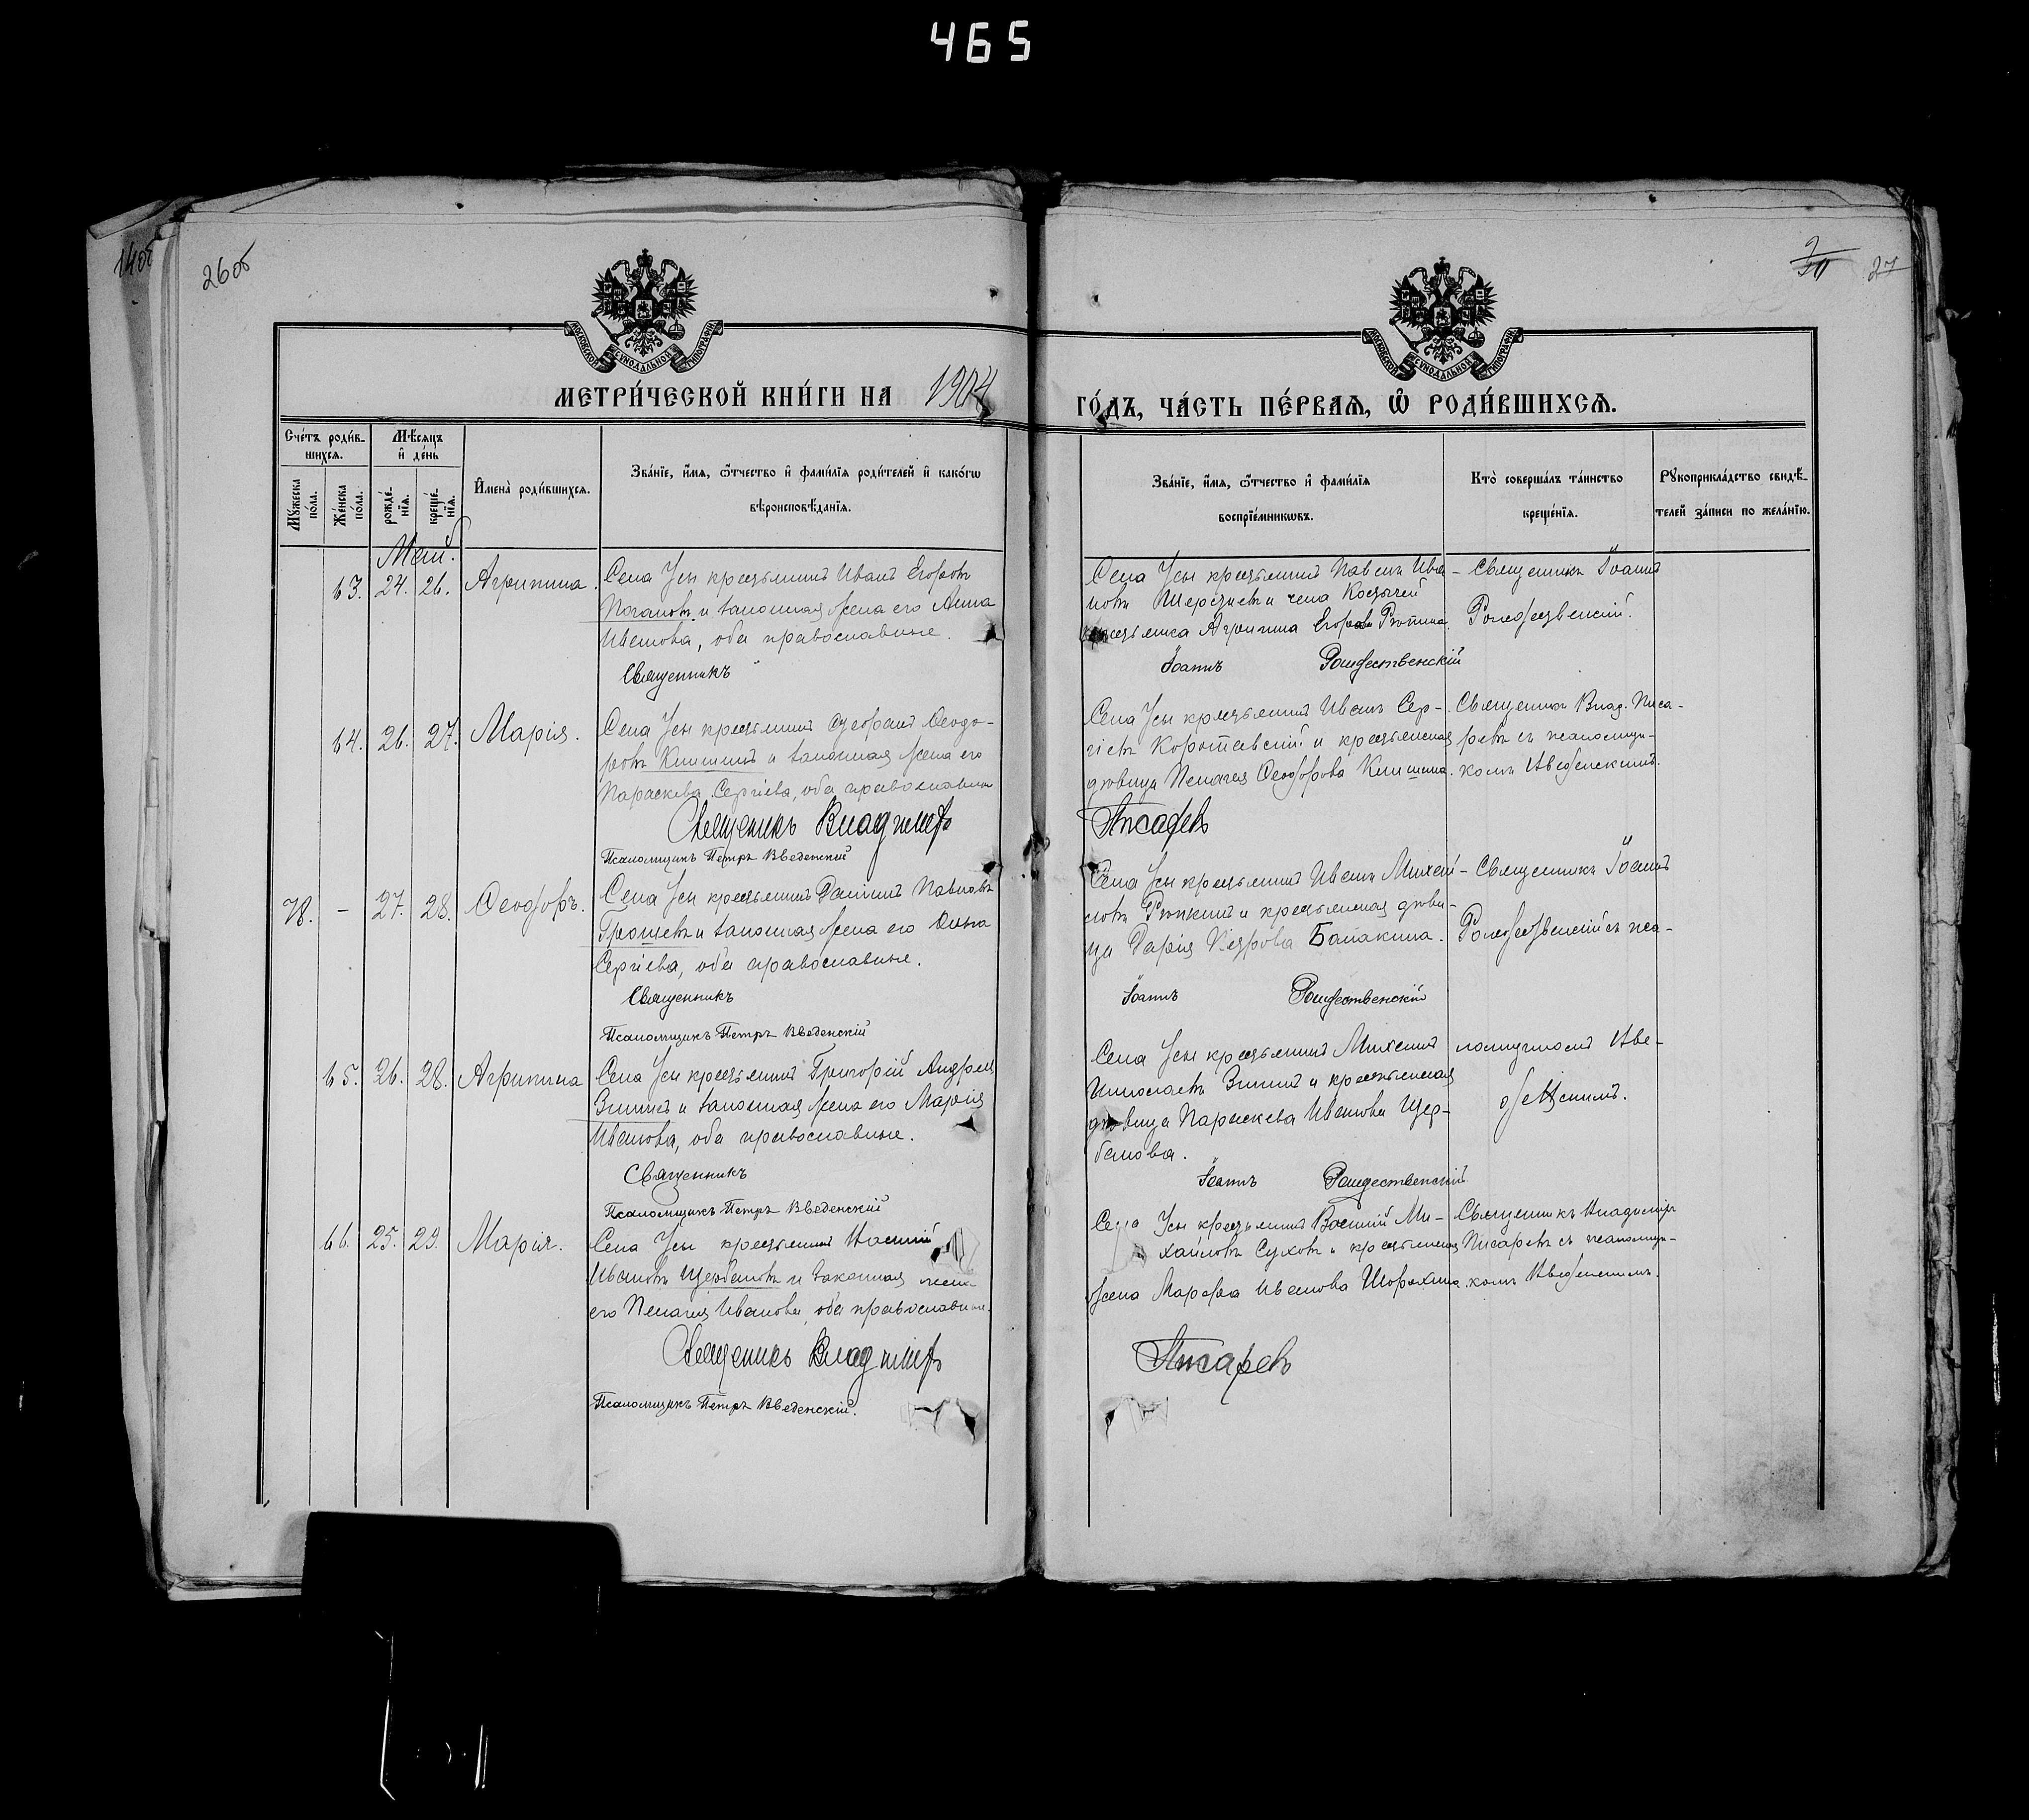 465
14об
26об
27
МОСКОВСКОЙ СѴНОДАЛЬНОЙ ТИПОГРАФІИ
МОСКОВСКОЙ СѴНОДАЛЬНОЙ ТИПОГРАФІИ
МЕТРИ́ЧЕСКОЙ КНИ́ГИ НА 1904
ГО́ДЪ, ЧА́СТЬ ПЕ́РВАЯ, Ѽ РОДИ́ВШИХСЯ.
Сче́тъ роди́в-
шихся.
Мѣ́сяцъ
и҆ де́нь
Му́жеска
по́ла.
Же́нска
по́ла.
рожде́-
нїя.
креще́-
нїя.
И҆мена̀ роди́вшихся.
Зва́нїе, и҆́мя, ѻ҆́тчество и҆ фами́лїя роди́телей и҆ како́гѡ
вѣроисповѣ́данїя.
Зва́нїе, и҆́мя, ѻ҆́тчество и҆ фами́лїя
воспрїе́мникѡвъ.
Кто̀ соверша́лъ та́инство
креще́нїя.
Рꙋкоприкла́дство свидѣ́-
телей за́писи по жела́нїю.
Май.
63. 24. 26. Агрипина.
Села Усы крестьянинъ Иванъ Егоровъ
и законная жена его Анна
Иванова, оба православные.
Священникъ
Села Усы крестьянинъ Павелъ Ива-
новъ и села Костычей
крестьянка Агрипина Егорова
Іоаннъ Рождественскій
Священникъ Іоаннъ
Рождественскій.
64. 26. 27. Марія.
Села Усы крестьянинъ Ѳеодо-
ровъ Кишкинъ и законная жена его
Параскева Сергіева, оба православны
Священникъ Владиміръ
Псаломщикъ Петръ Введенскій
Села Усы крестьянинъ Иванъ Сер-
гіевъ и крестьянская
дѣвица Пелагія Ѳеодорова
Писаревъ
Священникъ Влад. Писа-
ревъ съ псаломщи-
комъ Введенскимъ.
78. - 27. 28. Ѳеодоръ.
Села Усы крестьянинъ Павловъ
и законная жена его
Сергіева, оба православные.
Священникъ
Псаломщикъ Петръ Введенскій
Села Усы крестьянинъ Иванъ Михай-
ловъ и крестьянская дѣви-
ца Дарія Петрова Балакина.
Іоаннъ Рождественскій
Священникъ Іоаннъ
Рождественскій съ пса-
65. 26. 28. Агрипина
Села Усы крестьянинъ Григорій Андреевъ
Зининъ и законная жена его Марія
Иванова, оба православные.
Священникъ
Псаломщикъ Петръ Введенскій
Села Усы крестьянинъ Михаилъ
Зининъ и крестьянская
дѣвица Параскева Иванова Щер-
бакова.
Іоаннъ Рождественскій
ломщикомъ Вве-
денскимъ.
66. 25. 29. Марія.
Села Усы крестьянинъ
Ивановъ Щербаковъ и законная жена
его Пелагія Иванова, оба православные.
Священникъ Владиміръ
Псаломщикъ Петръ Введенскій.
Села Усы крестьянинъ Василій Ми-
хайловъ Суховъ и крестьянская
жена Марфа Иванова Шорохина.
Писаревъ
Священникъ Владиміръ
Писаревъ съ псаломщи-
комъ Введенскимъ.